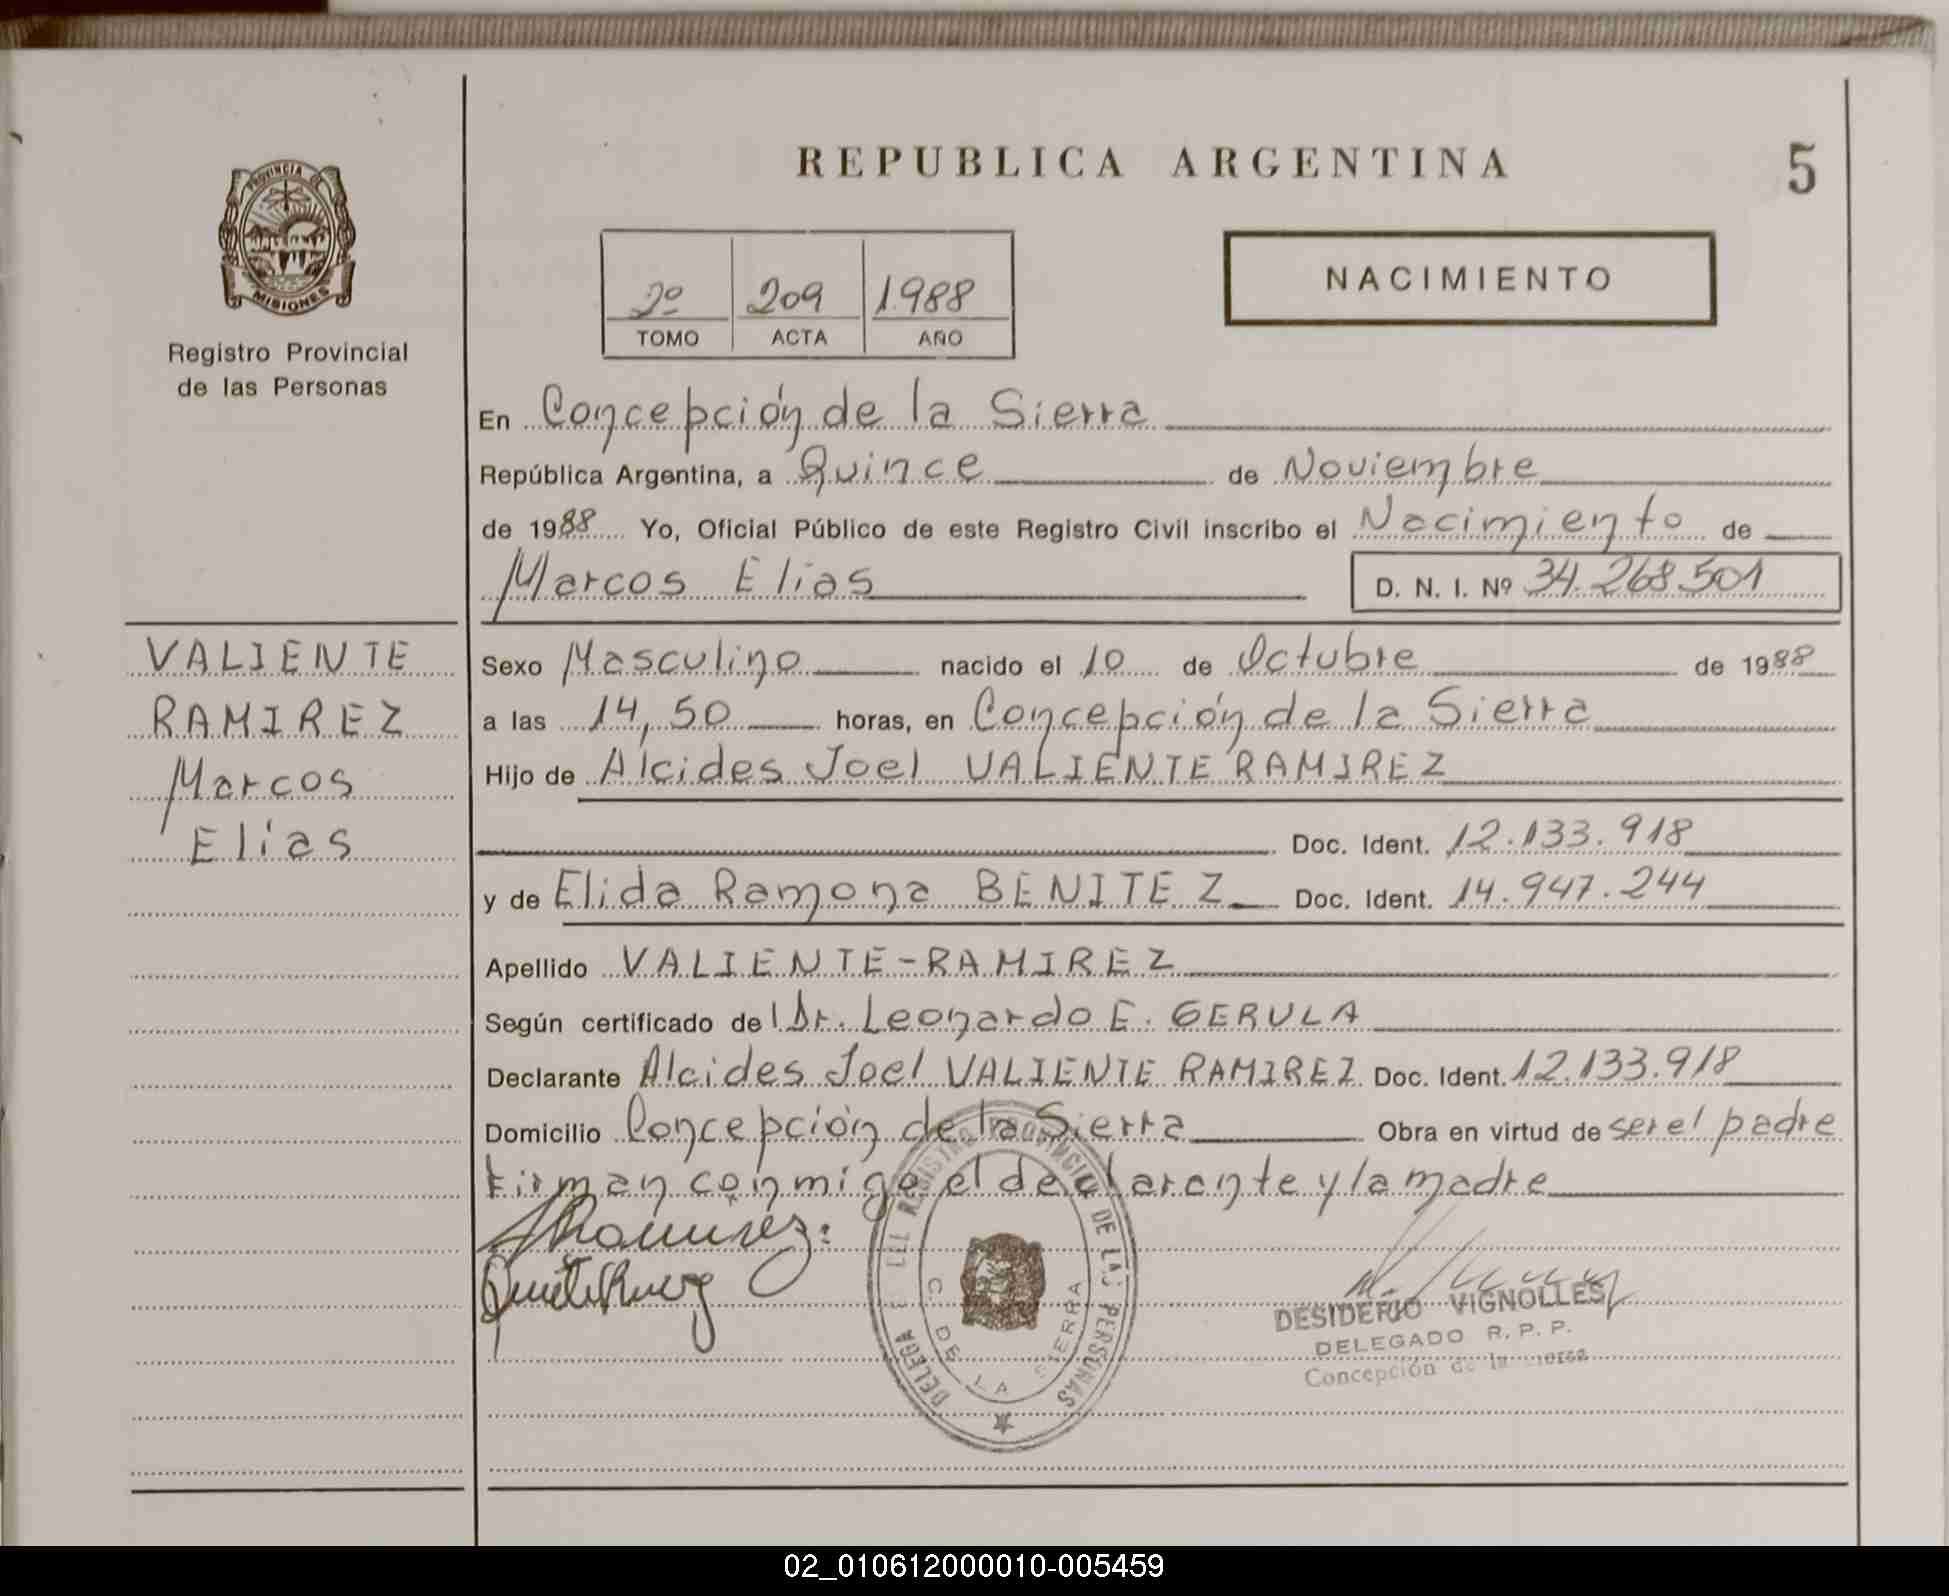 REPUBLICA ARGENTINA
5
PROVINCIA DE
MISIONES
Registro Provincial
de las Personas
2º 209 1.988
TOMO ACTA AÑO
NACIMIENTO
En Concepción de la Sierra
República Argentina, a Quince de Noviembre
de 1988 Yo, Oficial Público de este Registro Civil inscribo el Nacimiento de
Marcos Elias D. N. I. Nº 34.268.501
VALIENTE
RAMIREZ
Marcos
Elias
Sexo Masculino nacido el 10 de Octubre de 1988
a las 14,50 horas, en Concepción de la Sierra
Hijo de Alcides Joel VALIENTE RAMIREZ
Doc. Ident. 12.133.918
y de Elida Ramona BENITEZ Doc. Ident. 14.947.244
Apellido VALIENTE-RAMIREZ
Según certificado del Dr. Leonardo E. GERULA
Declarante Alcides Joel VALIENTE RAMIREZ Doc. Ident. 12.133.918
Domicilio Concepción de la Sierra Obra en virtud de ser el padre
Firman conmigo el declarante y la madre
REGISTRO PROVINCIAL DE LAS PERSONAS
C. DE LA SIERRA
DESIDERIO VIGNOLLES
DELEGADO R. P. P.
Concepción de la
02_010612000010-005459